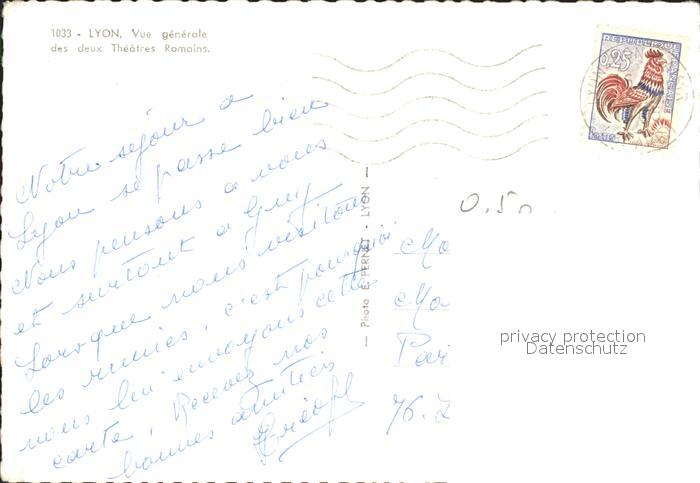 1033 - LYON. Vue générale
des deux Théâtres Romains.
REPUBLIQUE FRANÇAISE
0,25
POSTES
Notre séjour a
Lyon se passe bien
Nous pensons a vous
et surtout a Guy
Lorsque nous visitons
les ruines, c'est pourquoi
nous lui envoyons cette
carte. Recevez nos
bonnes amitiés
— Photo E. PERNET - LYON —
0.50
Mo
Ma
Par
76.
privacy protection
Datenschutz